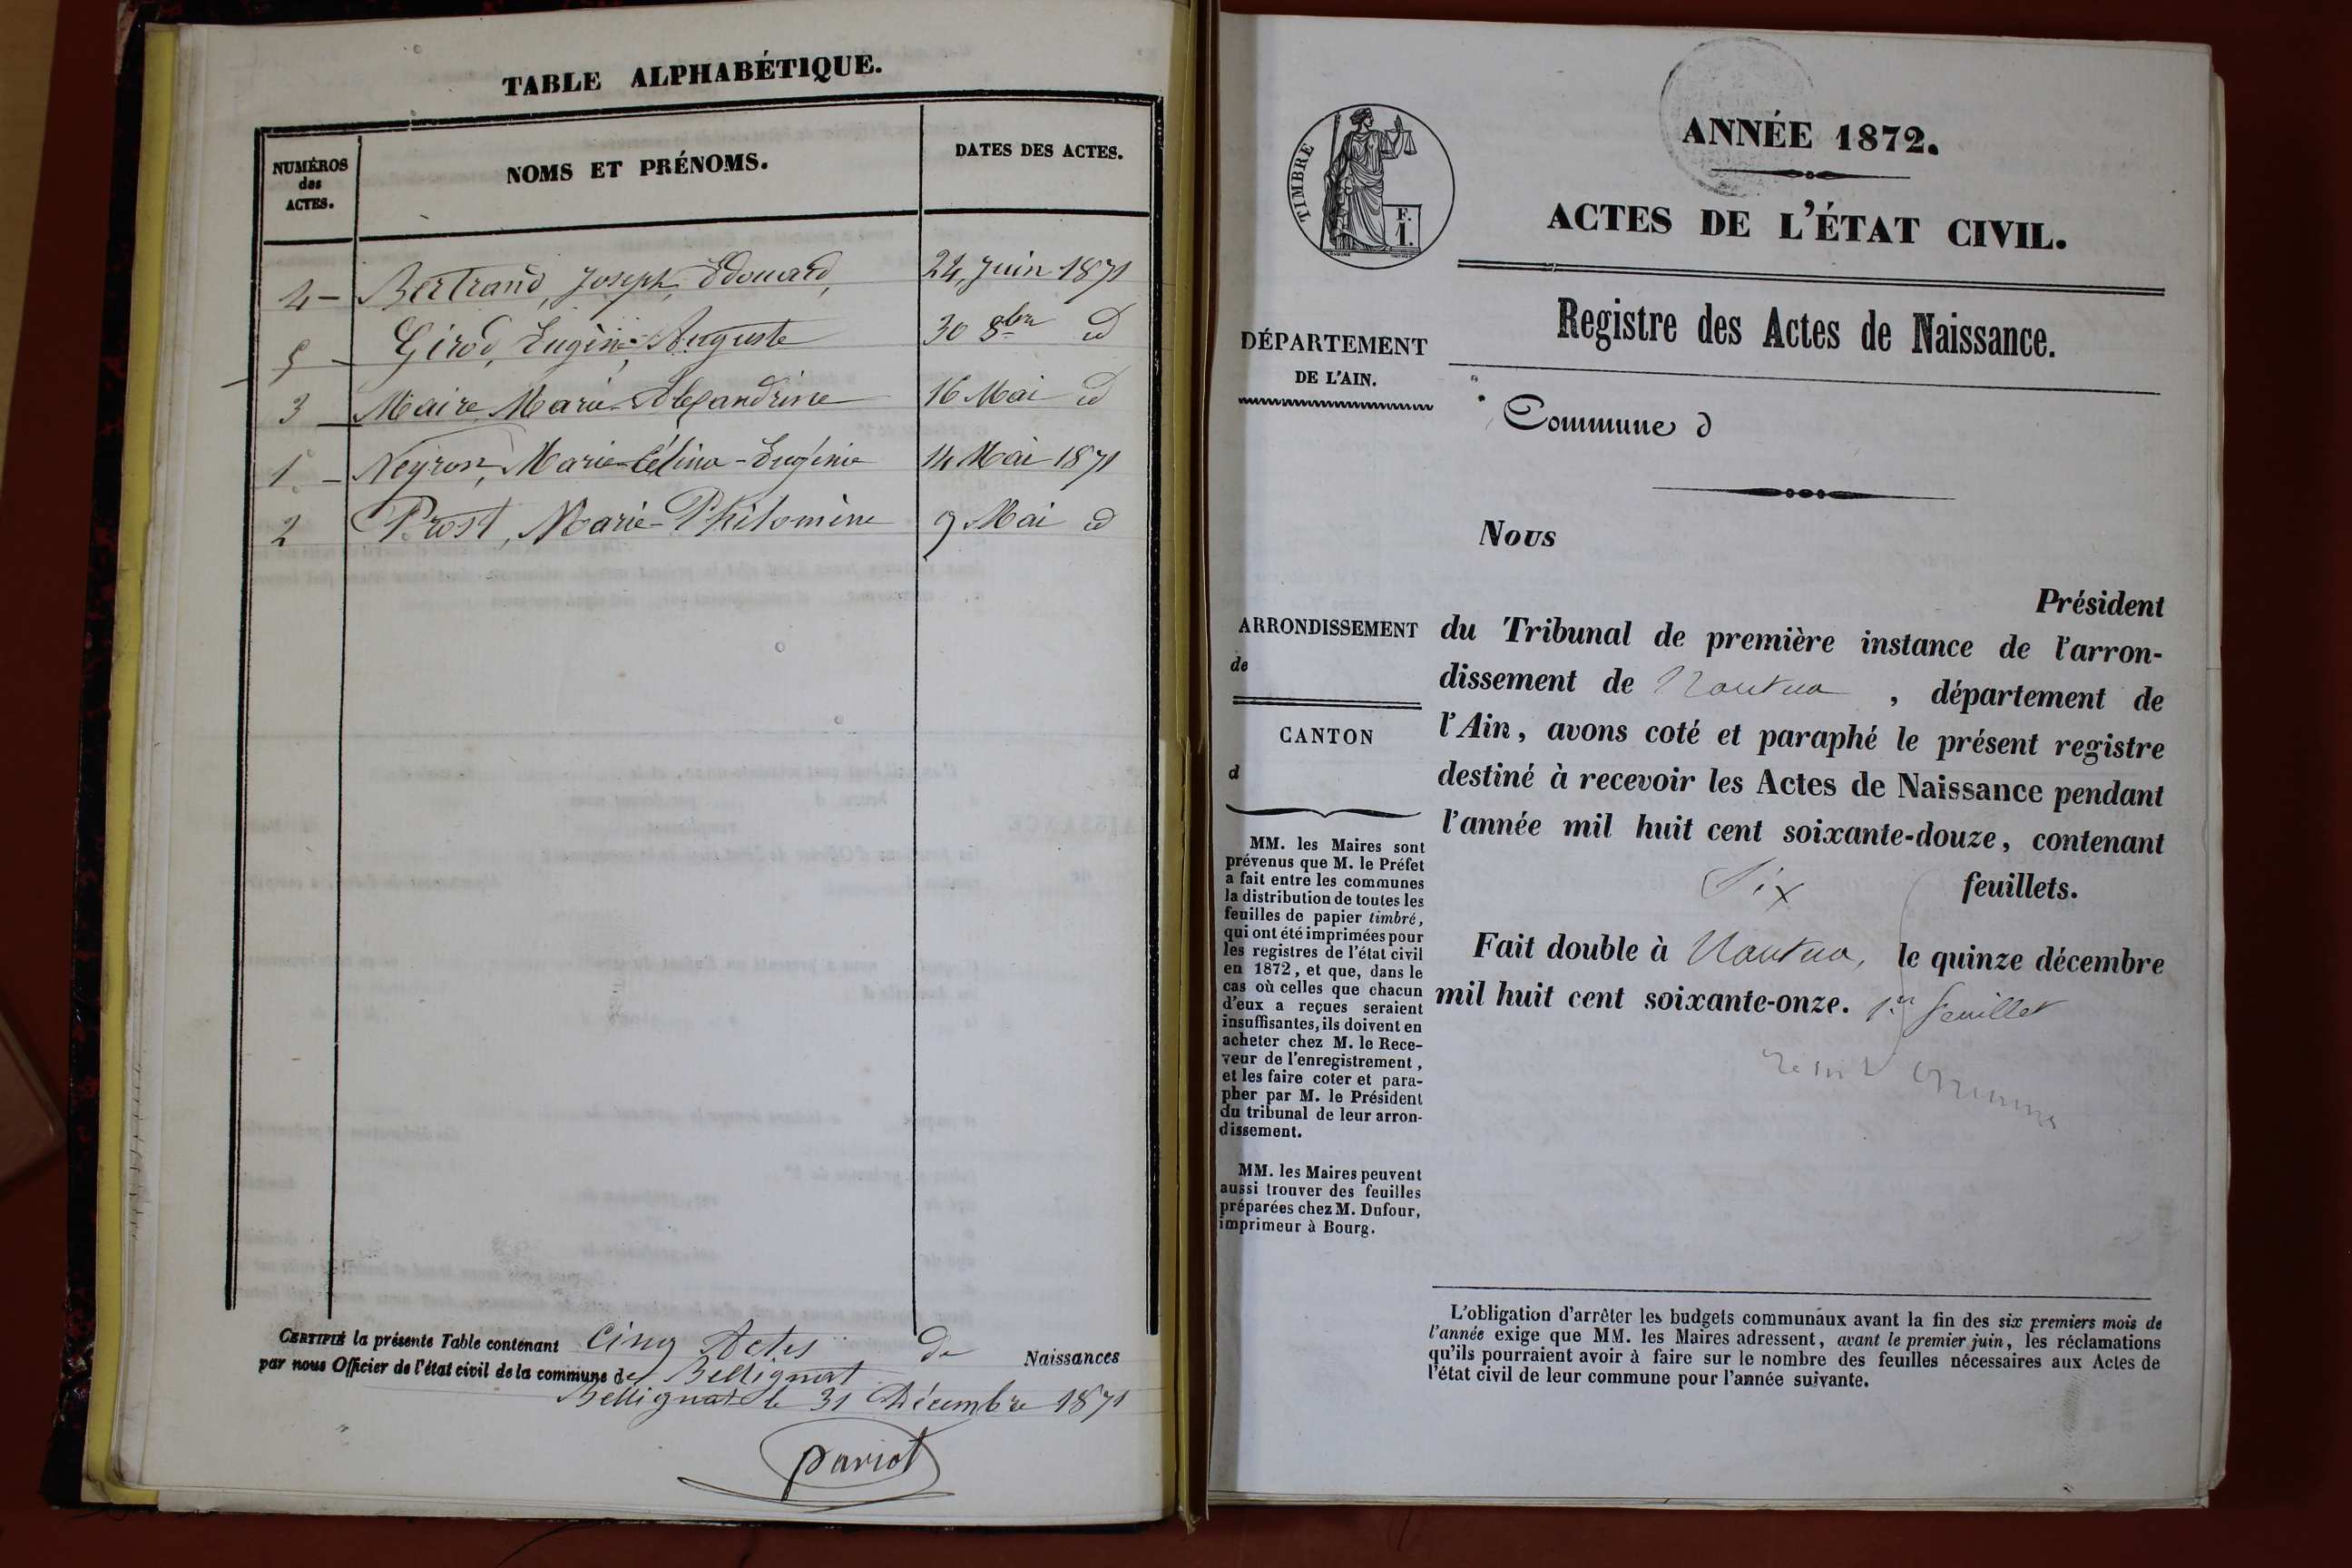 TABLE ALPHABÉTIQUE.
NUMÉROS des ACTES.
NOMS ET PRÉNOMS.
DATES DES ACTES.
4 - Bertrand, Joseph, Edouard, 24 Juin 1871
5 - Girod, Eugène-Auguste 30 8bre id
3 - Maire, Marie-Alexandrine 16 Mai id
1 - Neyron, Marie-Célina-Eugénie 14 Mai 1871
2 Prost, Marie-Philomène 9 Mai id
CERTIFIÉ la présente Table contenant Cinq Actes de Naissances
par nous Officier de l'état civil de la commune de Bellignat
Bellignat le 31 Décembre 1871
Pariot
TIMBRE
F.
I.
ANNÉE 1872.
ACTES DE L'ÉTAT CIVIL.
Registre des Actes de Naissance.
DÉPARTEMENT
DE L'AIN.
Commune d
Nous
Président
ARRONDISSEMENT
de
CANTON
d
du Tribunal de première instance de l'arron-
dissement de Nantua, département de
l'Ain, avons coté et paraphé le présent registre
destiné à recevoir les Actes de Naissance pendant
l'année mil huit cent soixante-douze, contenant
Six feuillets.
Fait double à Nantua, le quinze décembre
mil huit cent soixante-onze. 1er feuillet
MM. les Maires sont
prévenus que M. le Préfet
a fait entre les communes
la distribution de toutes les
feuilles de papier timbré,
qui ont été imprimées pour
les registres de l'état civil
en 1872, et que, dans le
cas où celles que chacun
d'eux a reçues seraient
insuffisantes, ils doivent en
acheter chez M. le Rece-
veur de l'enregistrement,
et les faire coter et para-
pher par M. le Président
du tribunal de leur arron-
dissement.
MM. les Maires peuvent
aussi trouver des feuilles
préparées chez M. Dufour,
imprimeur à Bourg.
L'obligation d'arrêter les budgets communaux avant la fin des six premiers mois de
l'année exige que MM. les Maires adressent, avant le premier juin, les réclamations
qu'ils pourraient avoir à faire sur le nombre des feuilles nécessaires aux Actes de
l'état civil de leur commune pour l'année suivante.